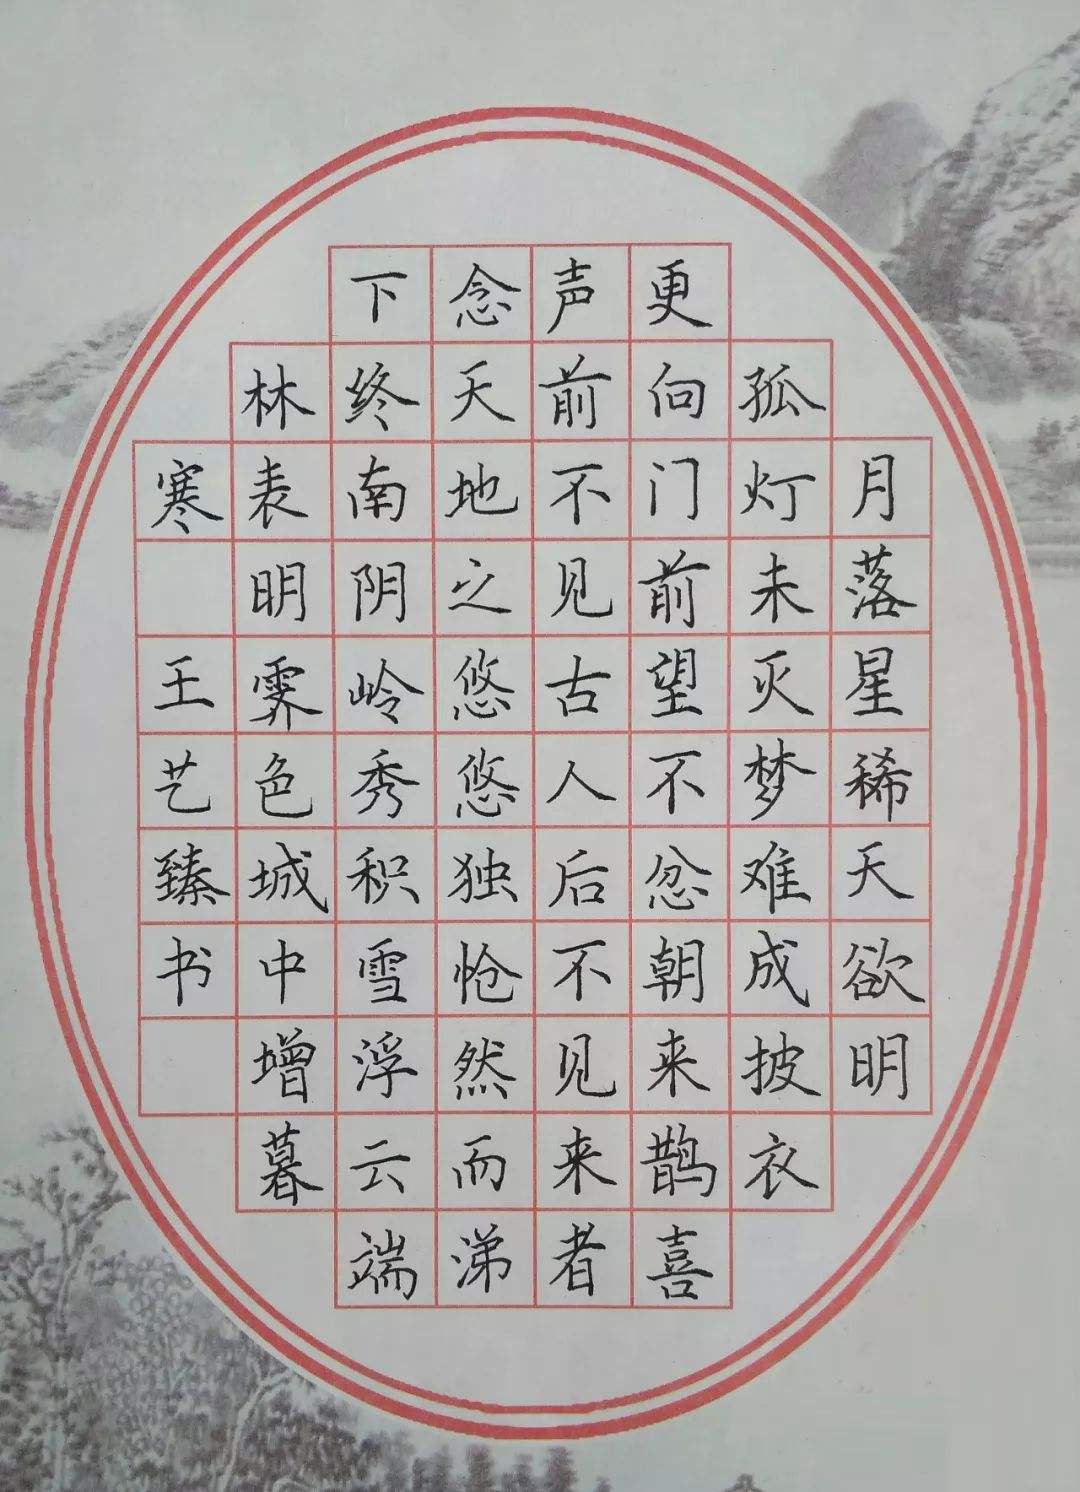 月落星稀天欲明
孤灯未灭梦难成披衣
更向门前望不忿朝来鹊喜
声前不见古人后不见来者
念天地之悠悠独怆然而涕
下终南阴岭秀积雪浮云端
林表明霁色城中增暮
寒 王艺臻书